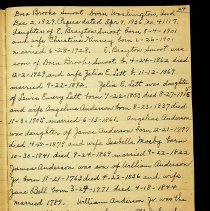 Dora Brooks Smoot born Washington, Ind.
Dec. 2, 1929. Paper dated Apr. 9, 1936 no. 41117.
daughters of E. Brayton Smoot born 8-9-1901
and wife Christina Kinney born 6-26-1901
married 6-28-1928. E. Brayton Smoot was
son of Dora Brooks Smoot b. 4-24-1862 died
12-2-1929 and wife Julia E. Lett b. 11-12-1861
married 9-22-1892. Julia E. Lett was daughter
of Lewis Emery Lett born 7-22-1833 died 8-27-1916
and wife Angeline Anderson born 8-23-1837 died
11-3-1905 married 6-13-1861. Angeline Anderson
was daughter of James Anderson born 12-21-1797
died 4-10-1879 and wife Isabella Mosby born
10-30-1841 died 8-24-1869 married 9-22-1822.
James Anderson was son of William Anderson
Jr. born 11-21-1763 died 4-22-1836 and wife
Jane Bell born 3-29-1771 died 4-18-1844
married 1789. William Anderson Jr. was the